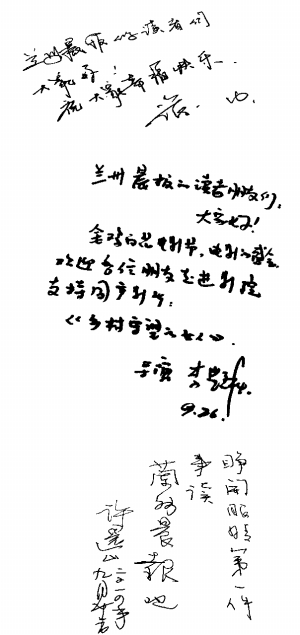 兰州晨报的读者们
大家好!
祝大家幸福快乐...
兰州晨报的读者朋友们:
大家好!
金鸡百花电影节,电影的盛会,
欢迎各位朋友走进影院
支持国产影片:
《乡村守望的女人》.
导演 李
9.26.
睁开眼睛第一件
事读
蘭州晨報吧
许還山
二〇一四年
九月